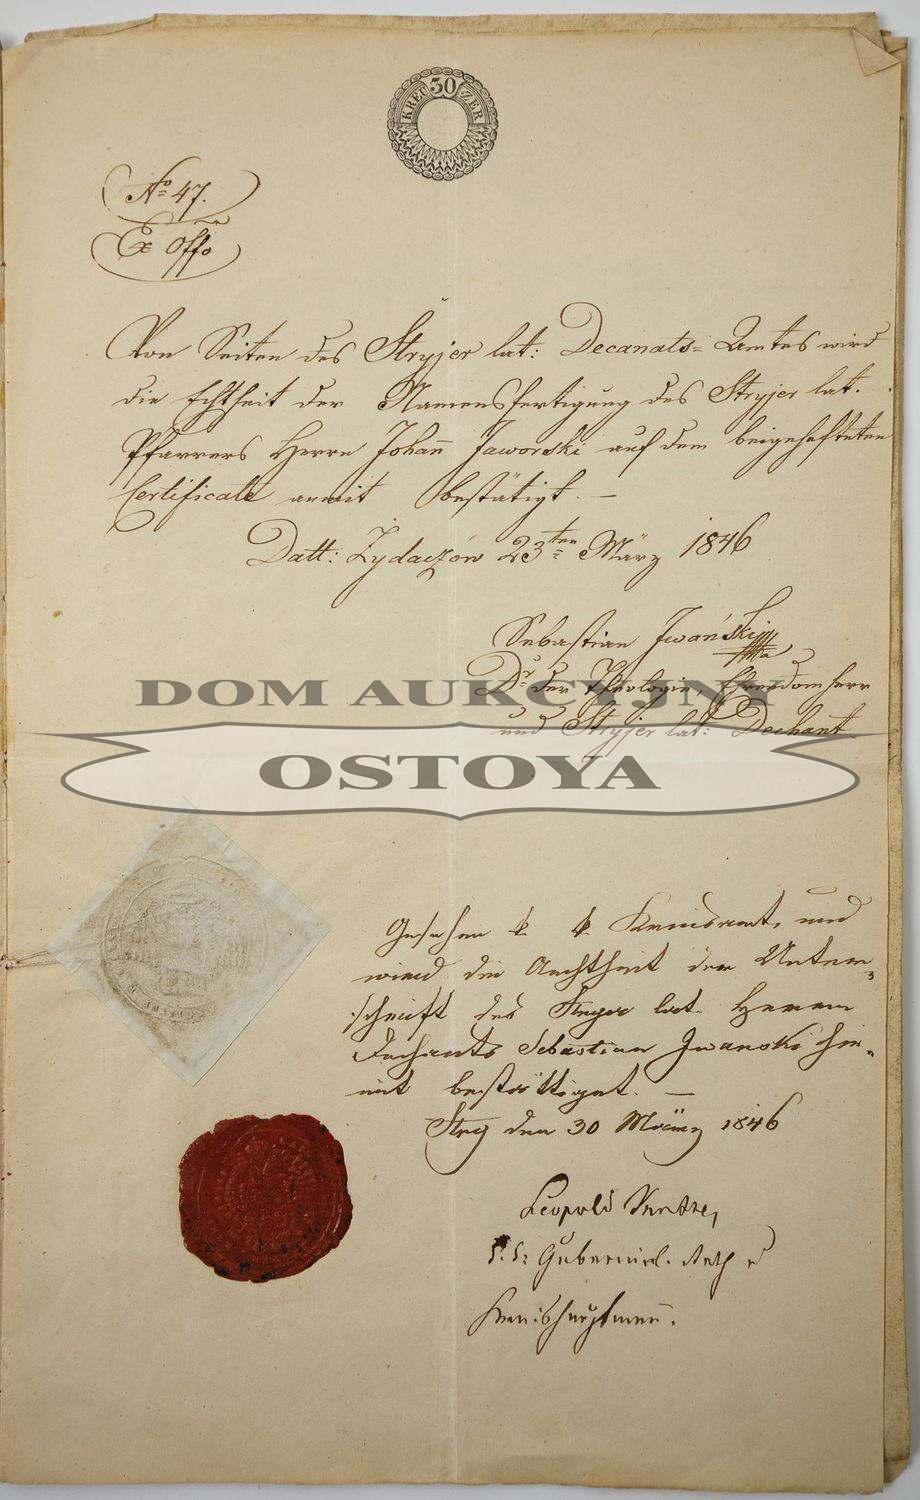 KREU 30 ZER
No 47.
Ex Offo
Von Seiten des Stryjer lat: Decanats= Amtes wird
die Echtheit der Namensfertigung des Stryjer lat.
Pfarrers Herrn Johann Jaworski auf dem beigehefteten
Certificate anmit bestätigt. —
Datt: Żydaczów 23ten März 1846
Sebastian Iwański
Dr der Theologie, Ehrendomherr
und Stryjer lat: Dechant
DOM AUKCYJNY
OSTOYA
Gesehen k. k. Kreisamt, und
wird die Aechtheit der Unter=
schrift des Stryer lat. Herrn
Dechants Sebastian Iwanski hie=
mit bestättiget. —
Stry den 30 März 1846
Leopold
k. k: Gubernial. Rath u
Kreishauptmann.